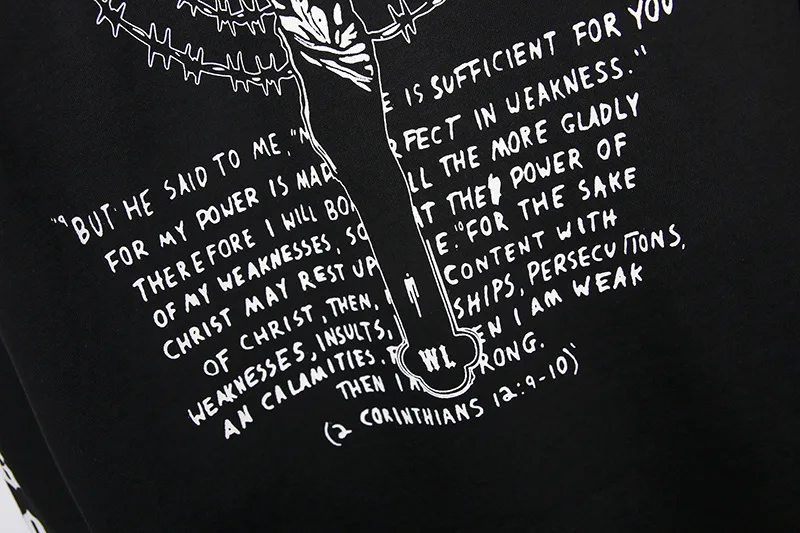 "⁹BUT HE SAID TO ME, "M E IS SUFFICIENT FOR YOU
FOR MY POWER IS MAD RFECT IN WEAKNESS."
THEREFORE I WILL BO LL THE MORE GLADLY
OF MY WEAKNESSES, SO AT THE POWER OF
CHRIST MAY REST UP E. ¹⁰FOR THE SAKE
OF CHRIST, THEN, CONTENT WITH
WEAKNESSES, INSULTS, SHIPS, PERSECUTIONS,
AN CALAMITIES. EN I AM WEAK
THEN I A RONG.
(2 CORINTHIANS 12:9-10)"
WL